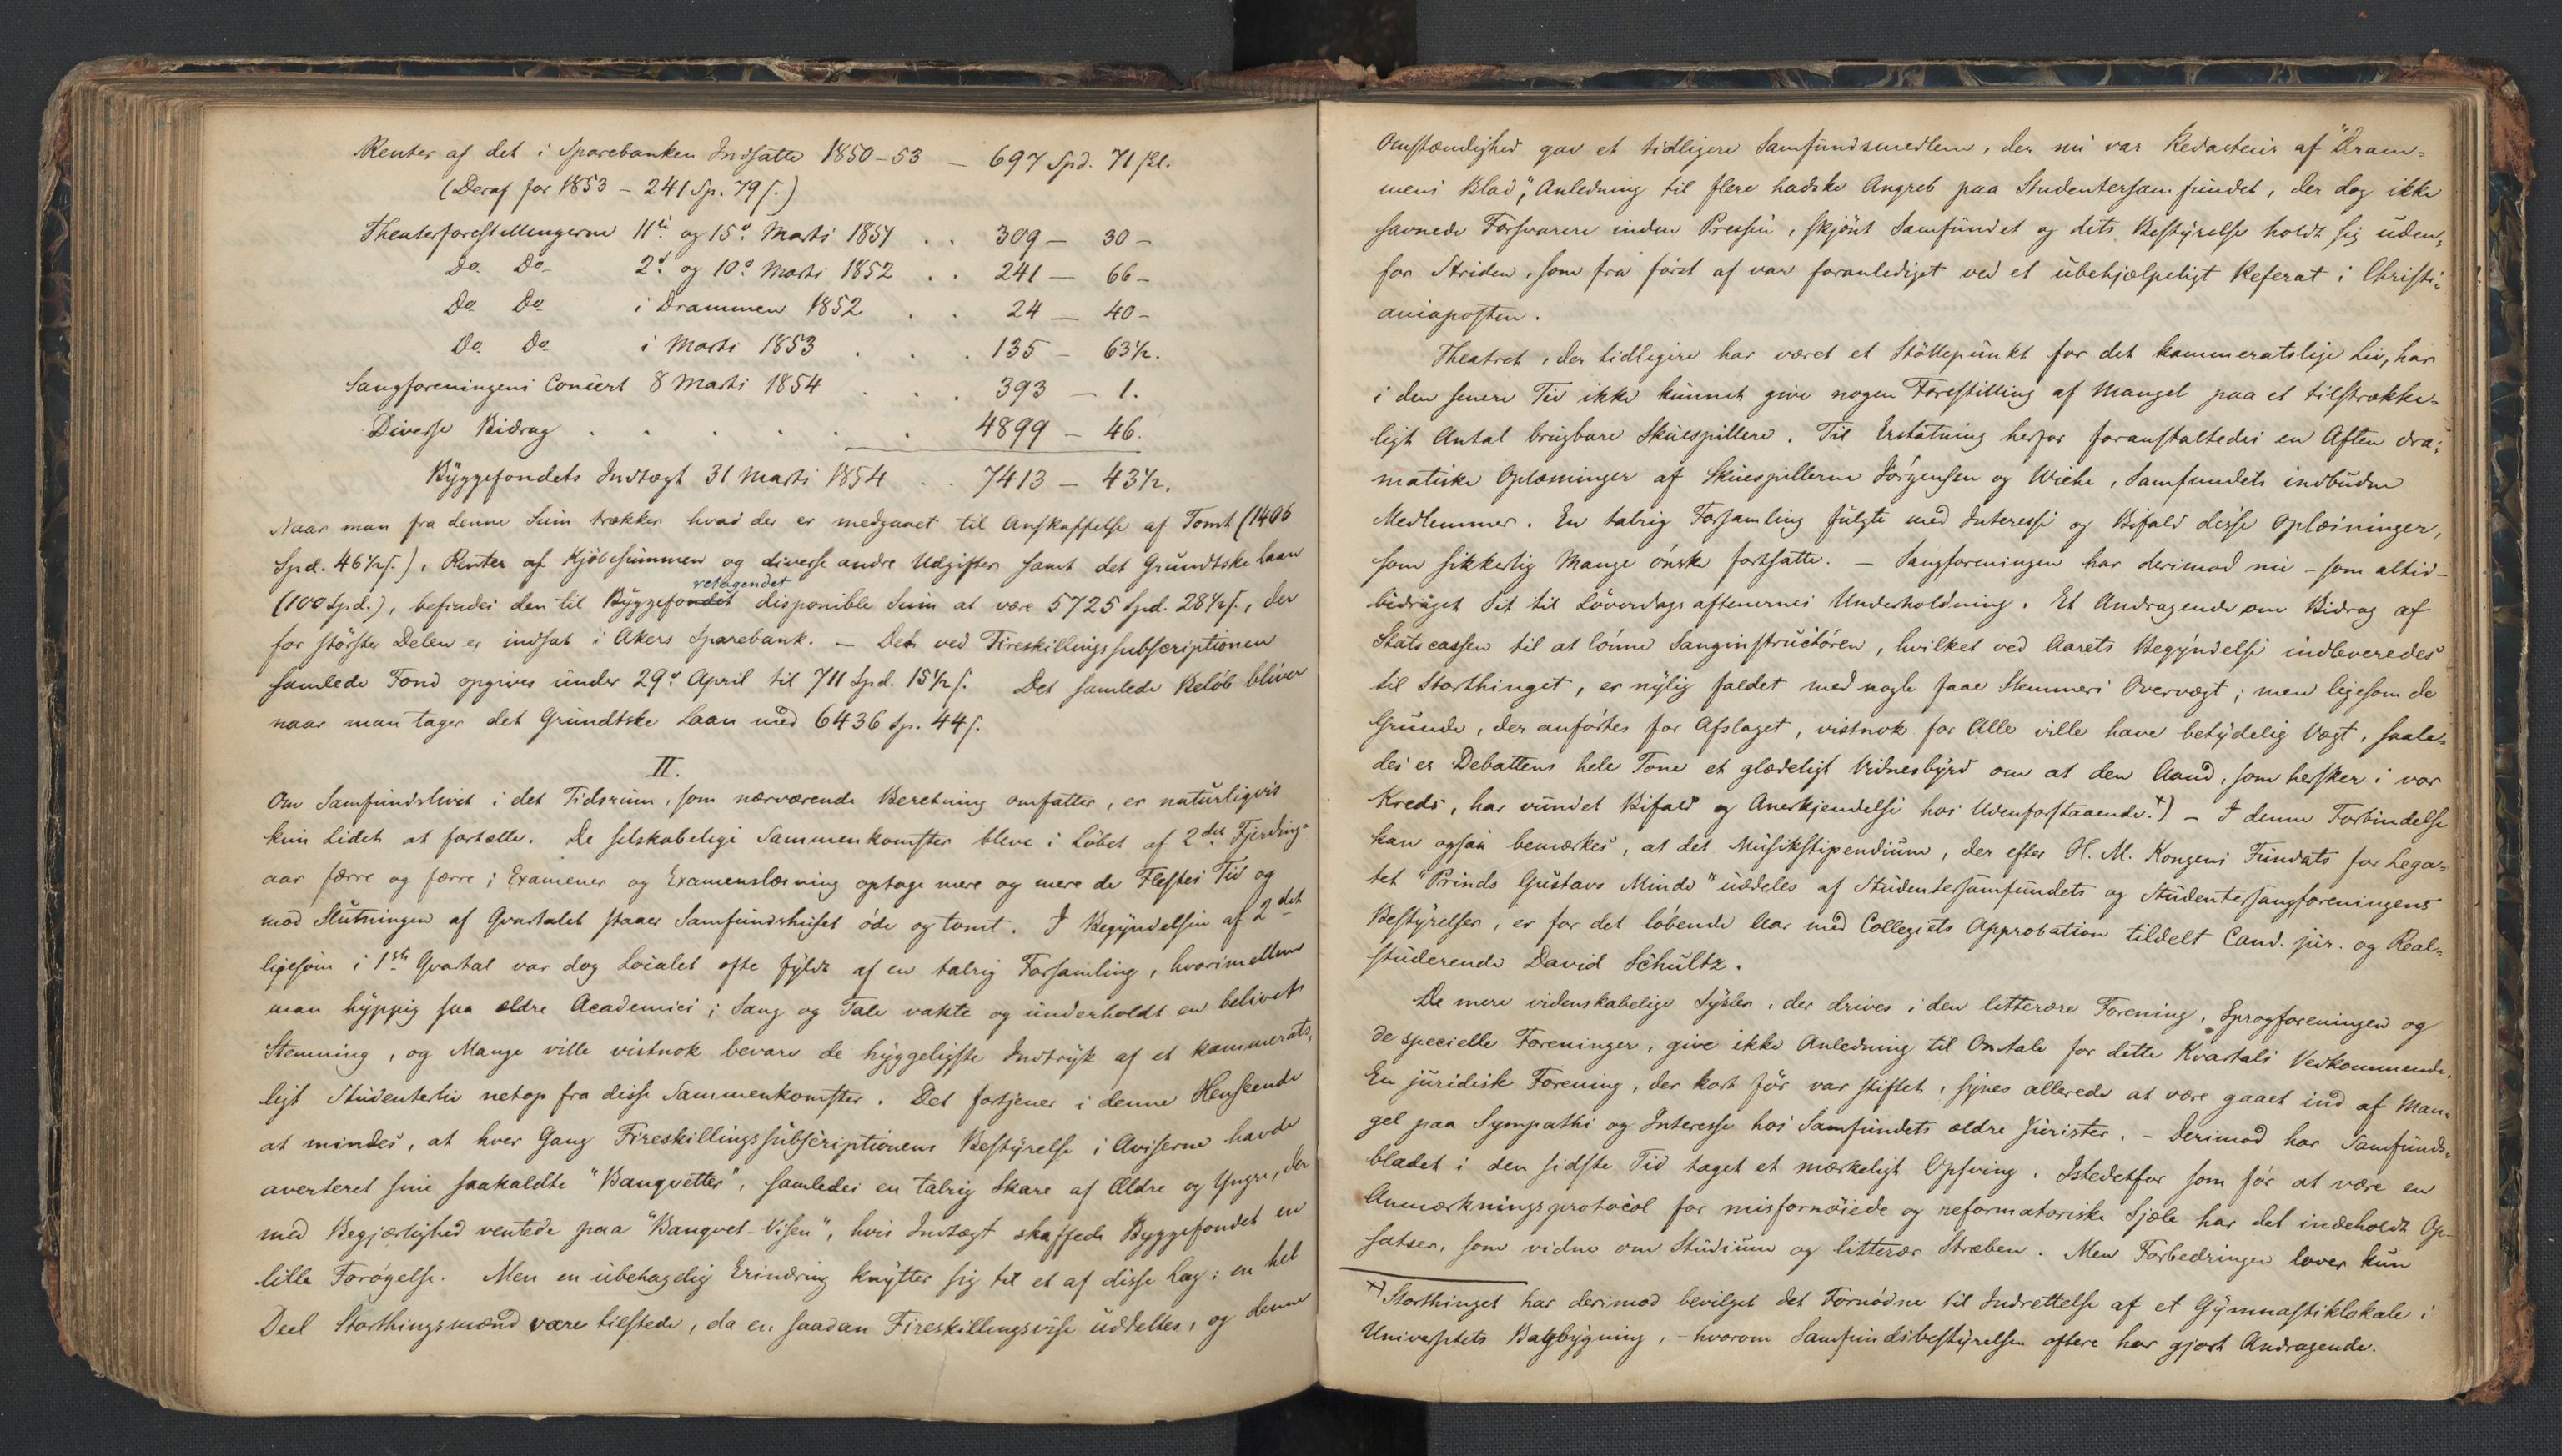 Renter af det i Sparebanken Indsatte 1850-53 — 697 Spd. 71 skl.
(Deraf for 1853 - 241 Sp. 79 s.)
Theaterforestillingerne 11te og 15de Marts 1851 . . 309 — 30 -
Do. Do. 2d. og 10d. Marts 1852 . . 241 — 66 -
Do. Do. i Drammen 1852 . . 24 — 40 -
Do. Do. i Marts 1853 . . . 135 — 63½.
Sangforeningens Concert 8 Marts 1854 . . . 393 — 1.
Diverse Bidrag . . . . . . 4899 — 46.
Byggefondets Indtægt 31 Marts 1854 . . 7413 — 43½.
Naar man fra denne Sum trækker hvad der er medgaaet til Anskaffelse af Tomt (1406
Spd. 46½ s.), Renter af Kjöbesummen og diverse andre Udgifter samt det Grundtske Laan
retagendet
(100 Spd.), befindes den til Byggefondet disponible Sum at være 5725 Spd. 28½ s., der
for störster Delen er indsat i Akers Sparebank. — Det ved Fireskillingssubscriptionen
samlede Fond opgives under 29d. April til 711 Spd. 15½ s. Det samlede Beløb bliver
naar man tager det Grundtske Laan med 6436 Sp. 44 s.
II.
Om Samfundslivet i det Tidsrum, som nærværende Beretning omfatter, er naturligvis
kun Lidet at fortælle. De selskabelige Sammenkomster bleve i Löbet af 2det Fjerding-
aar færre og færre; Examener og Examenslæsning optage mere og mere de Flestes Tid og
mod Slutningen af Qvartalet staaer Samfundshuset öde og tomt. I Begyndelsen af 2det
ligesom i 1ste Qvartal var dog Localet ofte fyldt af en talrig Forsamling, hvorimellem
man hyppig saa ældre Academici; Sang og Tale vakte og underholdt en belivet
Stemning, og Mange ville vistnok bevare de hyggeligste Indtryk af et kammerats-
ligt Studenterliv netop fra disse Sammenkomster. Det fortjener i denne Henseende
at mindes, at hver Gang Fireskillingssubscriptionens Bestyrelse i Aviserne havde
averteret sine saakaldte "Banqvetter", samledes en talrig Skare af Ældre og Yngre, der
med Begjærlighed ventede paa "Banqvet-Visen", hvis Indtægt skaffede Byggefondet en
lille Forögelse. Men en ubehagelig Erindring knytter sig til et af disse Lag: en hel
Deel Storthingsmænd vare tilstede, da en saadan Fireskillingsvise uddeltes, og denne
Omstændighed gav et tidligere Samfundsmedlem, der nu var Redacteur af "Dram-
mens Blad", Anledning til flere hadske Angreb paa Studentersamfundet, der dog ikke
savnede Forsvarere inden Pressen, skjönt Samfundet og dets Bestyrelse holdt sig uden-
for Striden, som fra först af var foranlediget ved et ubehjælpeligt Referat i Christi-
aniaposten.
Theatret, der tidligere har været et Stöttepunkt for det kammeratslige Liv, har
i den senere Tid ikke kunnet give nogen Forestilling af Mangel paa et tilstrække-
ligt Antal brugbare Skuespillere. Til Erstatning herfor foranstaltedes en Aften dra-
matiske Oplæsninger af Skuespillerne Jörgensen og Wiehe, Samfundets indbudne
Medlemmer. En talrig Forsamling fulgte med Interesse og Bifald disse Oplæsninger,
som sikkerlig Mange önske fortsatte. — Sangforeningen har derimod nu - som altid -
bidraget Sit til Löverdagsaftenernes Underholdning. Et Andragende om Bidrag af
Statscassen til at lönne Sanginstructören, hvilket ved Aarets Begyndelse indleveredes
til Storthinget, er nylig faldet med nogle faae Stemmers Overvægt; men ligesom de
Grunde, der anförtes for Afslaget, vistnok for Alle ville have betydelig Vægt, saale-
des er Debattens hele Tone et glædeligt Vidnesbyrd om at den Aand, som hersker i vor
Kreds, har vundet Bifald og Anerkjendelse hos Udenforstaaende.*) — I denne Forbindelse
kan ogsaa bemærkes, at det Musikstipendium, der efter H. M. Kongens Fundats for Lega-
tet "Prinds Gustavs Minde" uddeles af Studentersamfundets og Studentersangforeningens
Bestyrelser, er for det löbende Aar med Collegiets Approbation tildelt Cand. jur. og Real-
studerende David Schultz.
De mere videnskabelige Sysler, der drives i den litterære Forening, Sprogforeningen og
de specielle Foreninger, give ikke Anledning til Omtale for dette Kvartals Vedkommende.
En juridisk Forening, der kort för var stiftet, synes allerede at være gaaet ind af Man-
gel paa Sympathi og Interesse hos Samfundets ældre Jurister. — Derimod har Samfunds-
bladet i den sidste Tid taget et mærkeligt Opsving. Istedetfor som för at være en
Anmærkningsprotocol for misfornöiede og reformatoriske Sjæle har det indeholdt Op-
satser, som vidne om Studium og litterær Stræben. Men Forbedringen lover kun
*) Storthinget har derimod bevilget det Fornödne til Indrettelse af et Gymnastiklokale i
Universitets Bagbygning, - hvorom Samfundsbestyrelsen oftere har gjort Andragende.